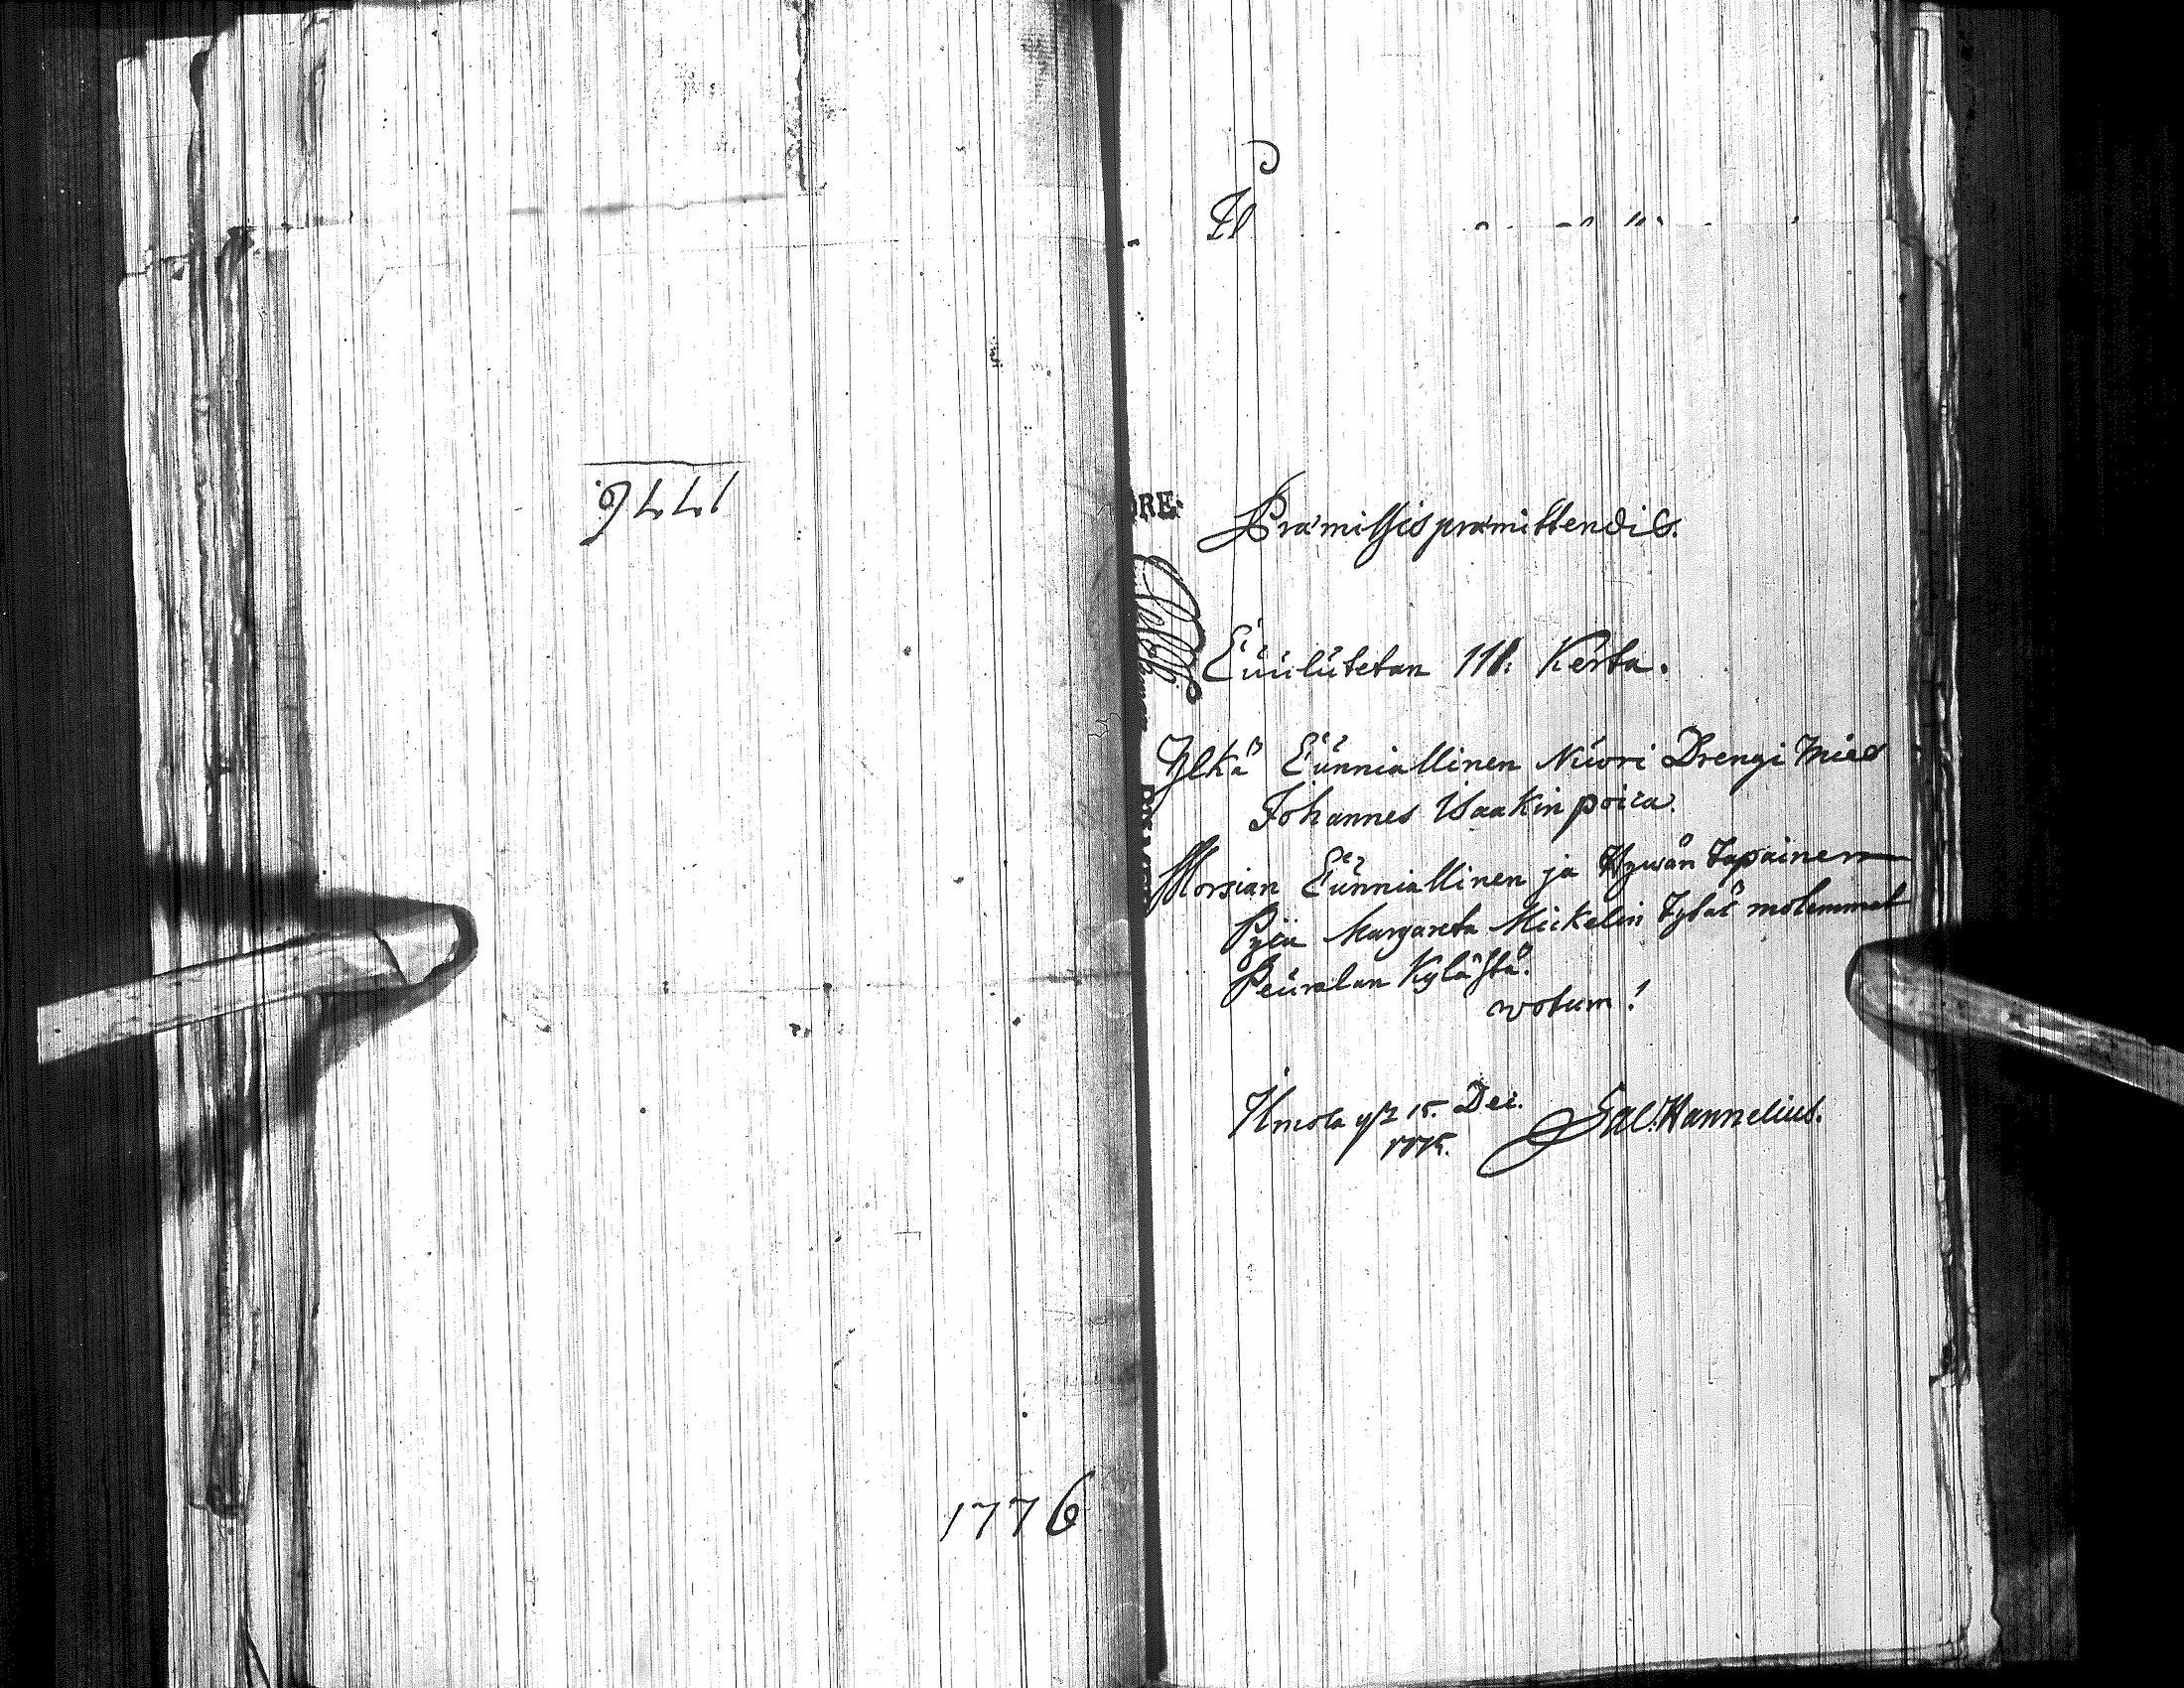 1776.
1776
Præmissis præmittendis.
Cuulutetan 111: Kerta.
Ylkä Cunniallinen Nuori Drengi Mies
Johannes Isaakin poica.
Morsian Cunniallinen ja Hywän Tapainen
Pijca Margareta Mickelin Tytär molemmat
Peuralan Kylästä.
votum!
Ilmola 15. Dec.
Sal. Hannelius.